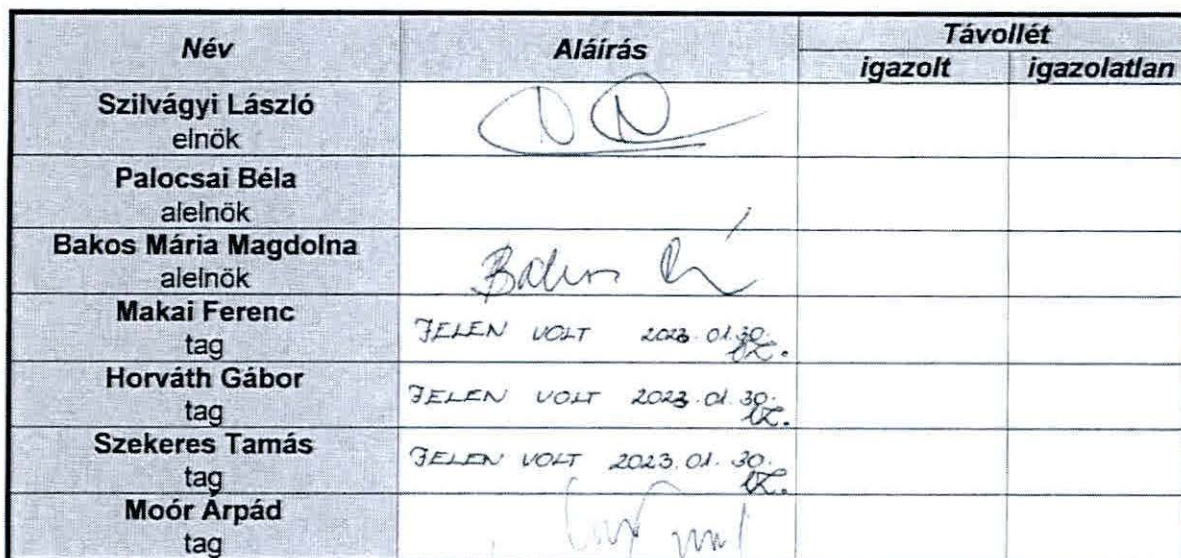 Név Aláírás Távollét
igazolt igazolatlan
Szilvágyi László
elnök
Palocsai Béla
alelnök
Bakos Mária Magdolna
alelnök
Bakos
Makai Ferenc
tag
JELEN VOLT 2023.01.30.
Horváth Gábor
tag
JELEN VOLT 2023.01.30.
Szekeres Tamás
tag
JELEN VOLT 2023.01.30.
Moór Árpád
tag